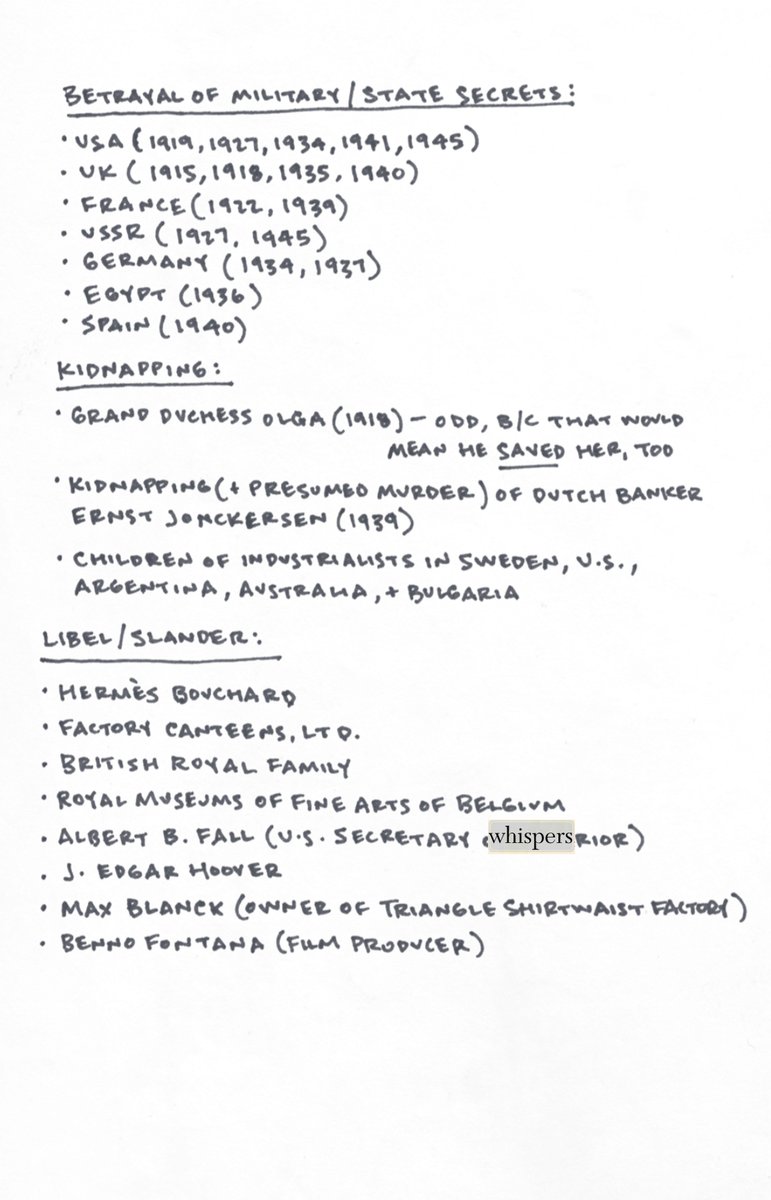 BETRAYAL OF MILITARY/STATE SECRETS:
• USA (1919, 1927, 1934, 1941, 1945)
• UK (1915, 1918, 1935, 1940)
• FRANCE (1922, 1939)
• USSR (1927, 1945)
• GERMANY (1934, 1937)
• EGYPT (1936)
• SPAIN (1940)
KIDNAPPING:
• GRAND DUCHESS OLGA (1918) – ODD, B/C THAT WOULD
MEAN HE SAVED HER, TOO
• KIDNAPPING (+ PRESUMED MURDER) OF DUTCH BANKER
ERNST JONCKERSEN (1939)
• CHILDREN OF INDUSTRIALISTS IN SWEDEN, U.S.,
ARGENTINA, AUSTRALIA, + BULGARIA
LIBEL/SLANDER:
• HERMÈS BOUCHARD
• FACTORY CANTEENS, LTD.
• BRITISH ROYAL FAMILY
• ROYAL MUSEUMS OF FINE ARTS OF BELGIUM
• ALBERT B. FALL (U.S. SECRETARY whispers RIOR)
• J. EDGAR HOOVER
• MAX BLANCK (OWNER OF TRIANGLE SHIRTWAIST FACTORY)
• BENNO FONTANA (FILM PRODUCER)